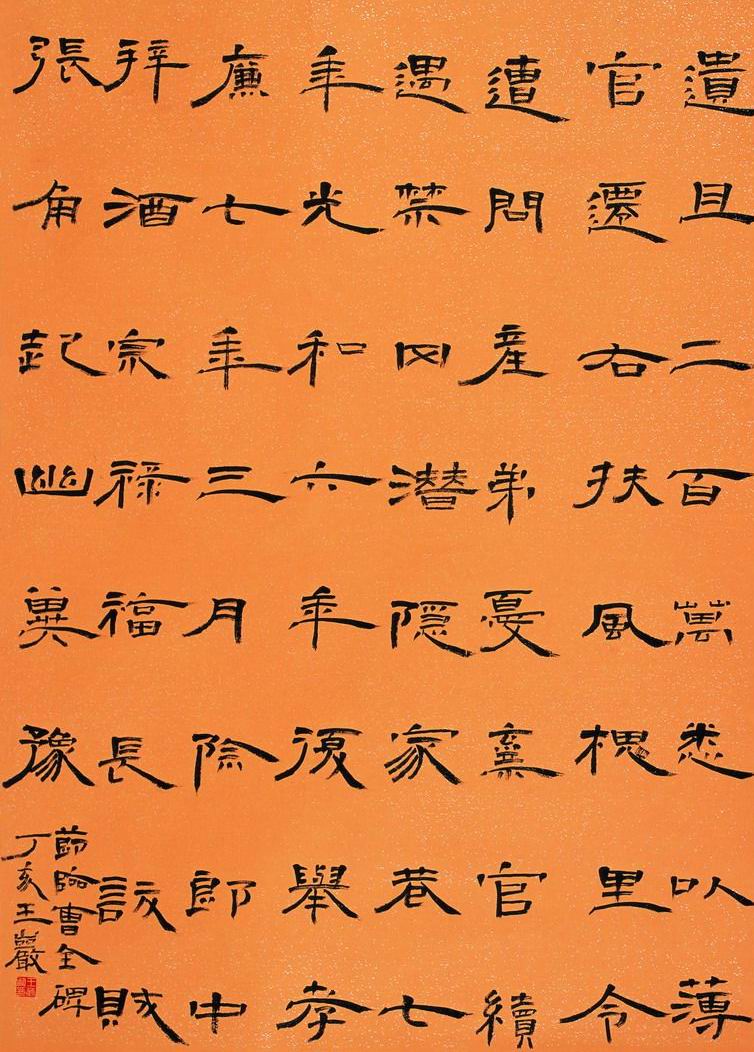 遺且二百萬悉以薄
官遷右扶風槐里令
遭問產弟憂棄官續
遇禁罔潛隱家巷七
年光和六年復舉孝
廉七年三月除郎中
拜酒泉祿福長訞賊
張角起幽冀豫
節臨曹全碑
丁亥王巖